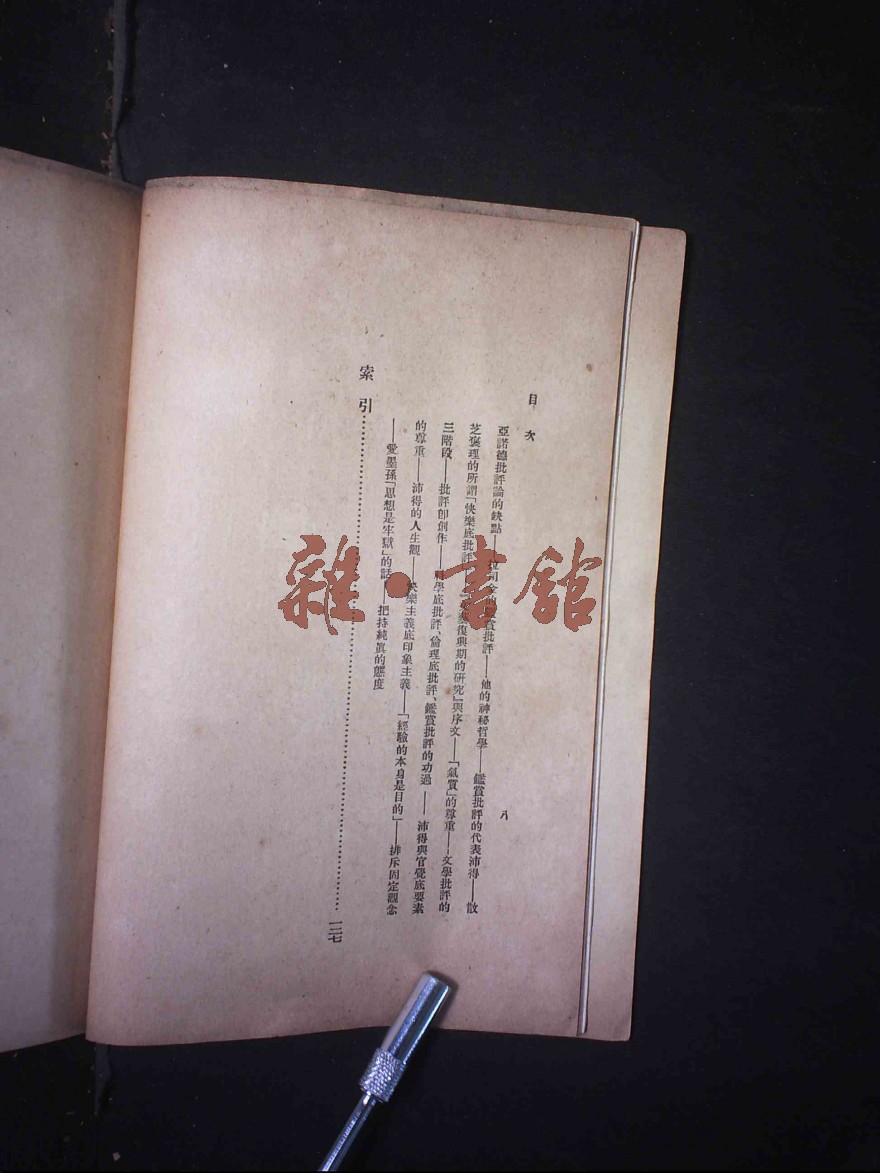 目次
八
亞諾德批評論的缺點——司金的鑑賞批評——他的神秘哲學——鑑賞批評的代表沛得——散
芝褒理的所謂「快樂底批評——復興期的研究」與序文——「氣質」的尊重——文學批評的
三階段——批評卽創作——學底批評、倫理底批評、鑑賞批評的功過——沛得與官覺底要素
的尊重——沛得的人生觀——快樂主義底印象主義——「經驗的本身是目的」——排斥固定觀念
——愛墨孫「思想是牢獄」的話——把持純眞的態度
索引……一二七
雜·書館